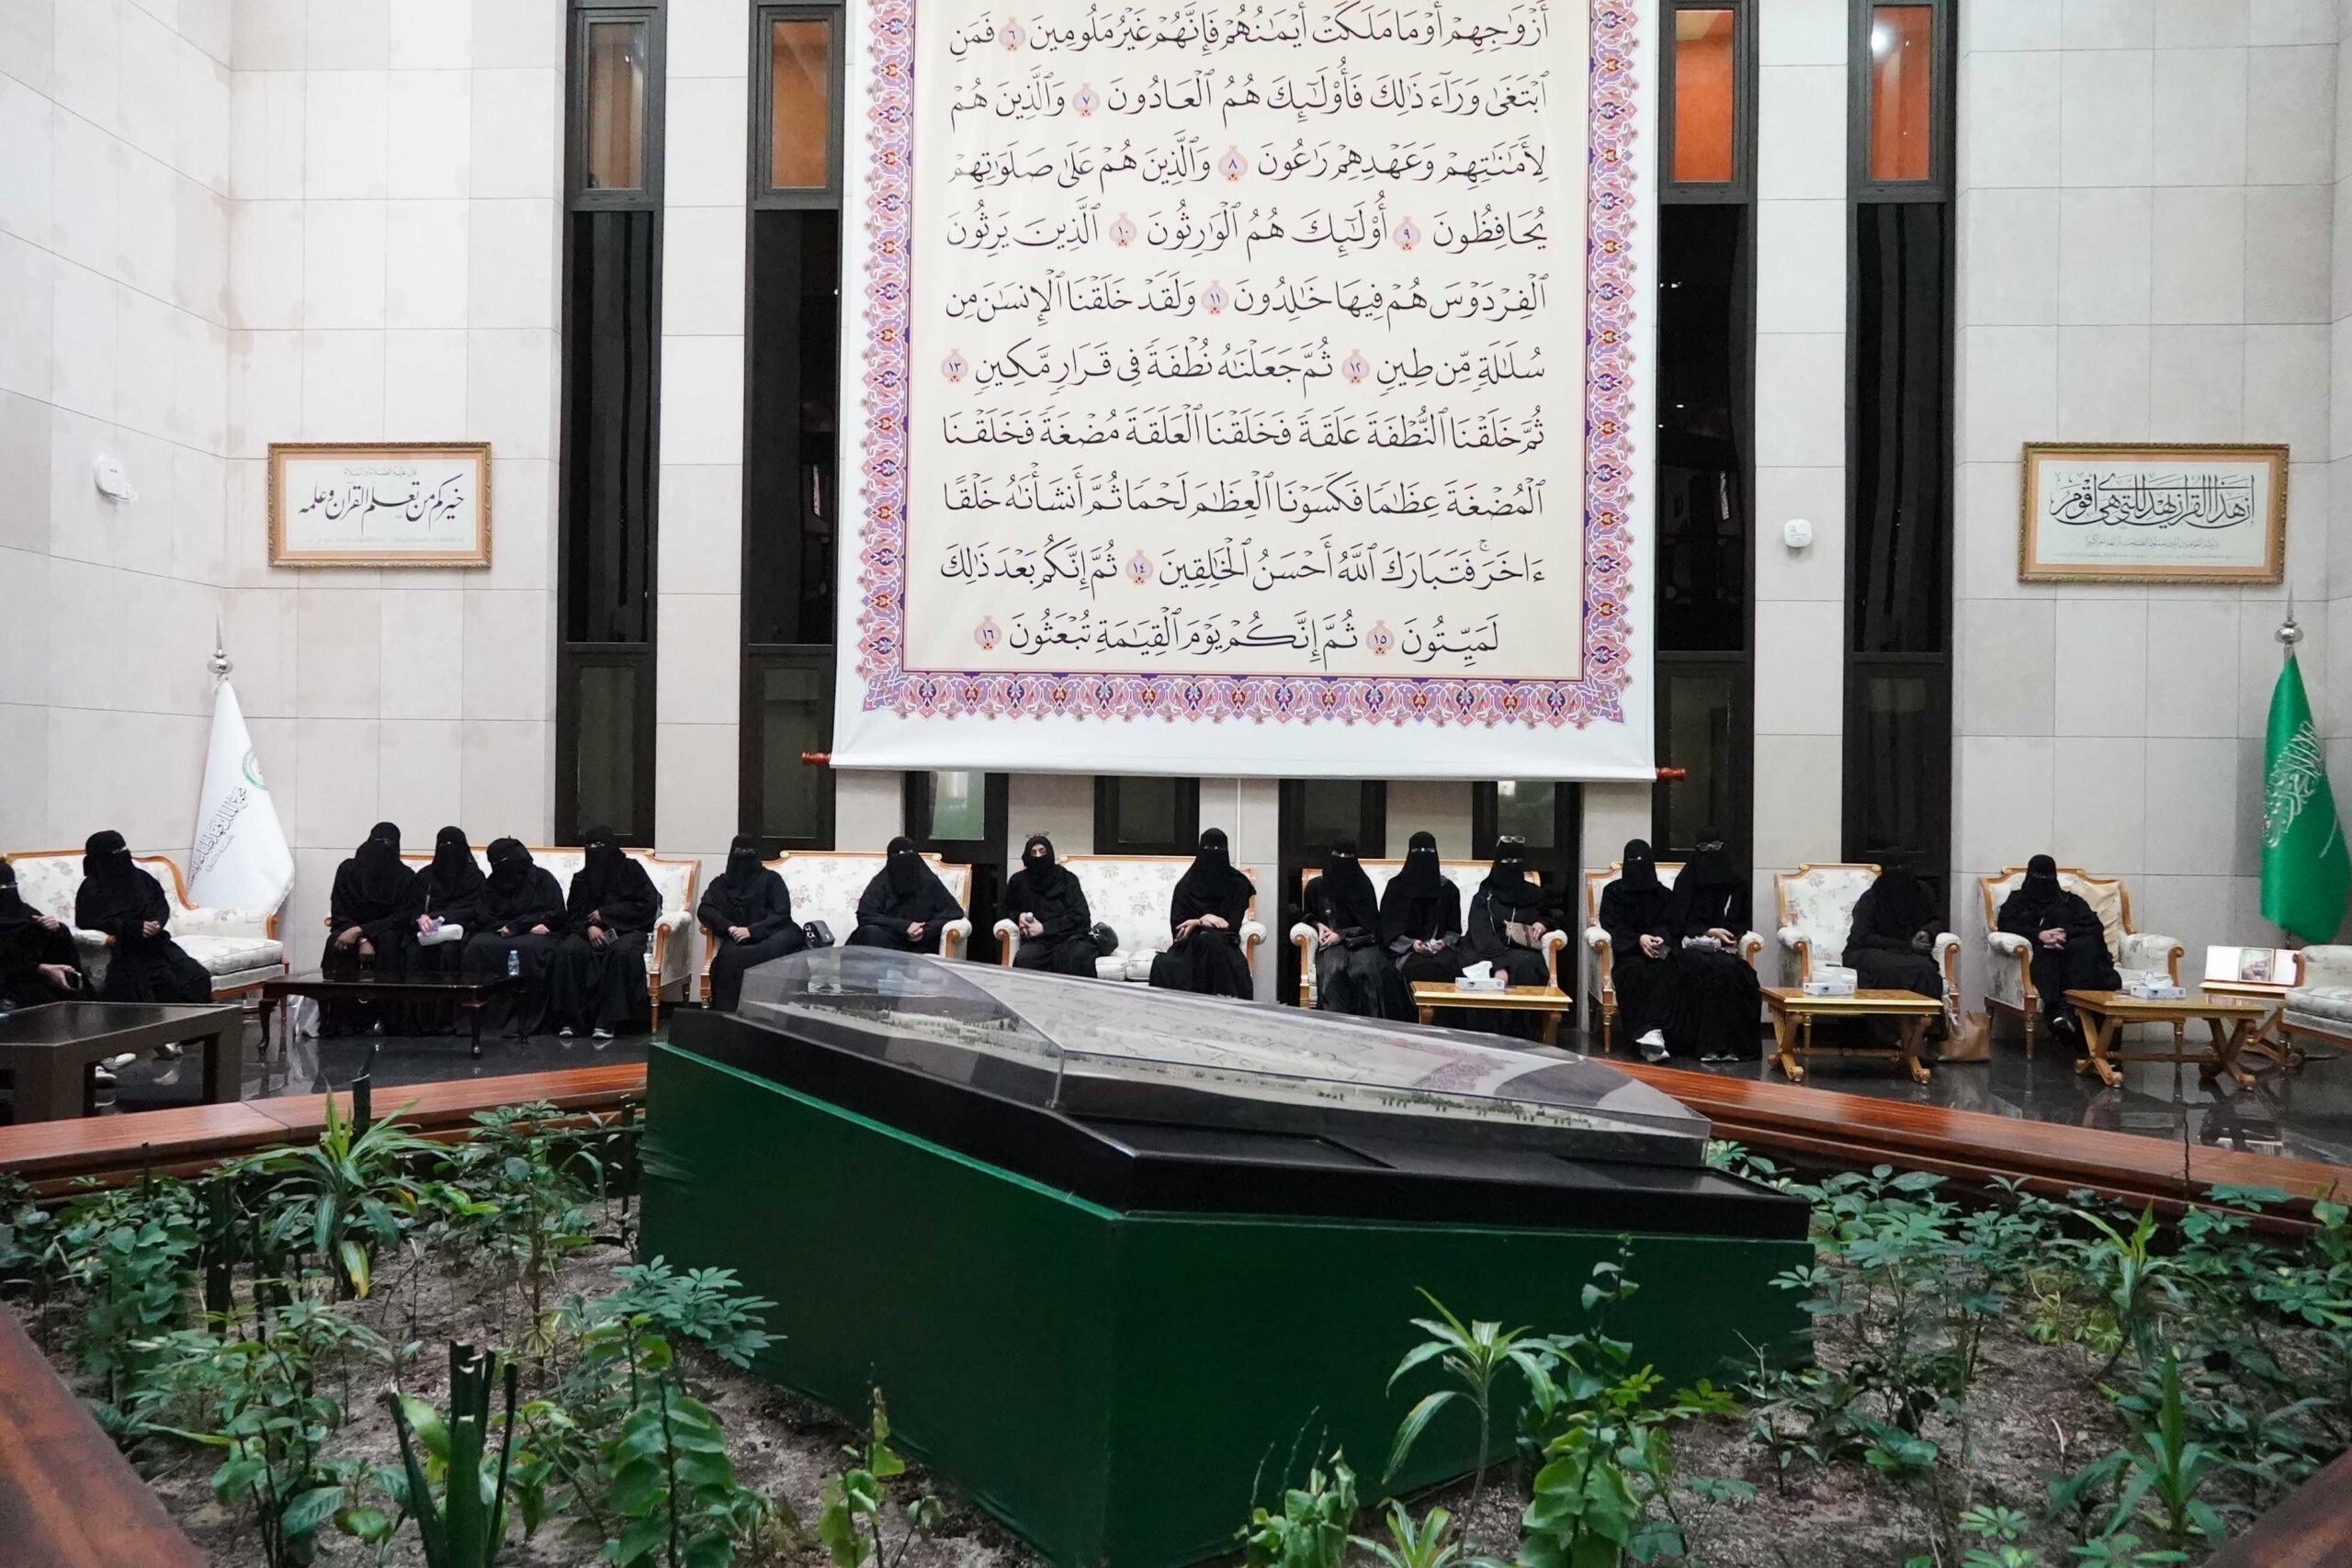 أَزۡوَٰجِهِمۡ أَوۡ مَا مَلَكَتۡ أَيۡمَٰنُهُمۡ فَإِنَّهُمۡ غَيۡرُ مَلُومِينَ ٦ فَمَنِ
ٱبۡتَغَىٰ وَرَآءَ ذَٰلِكَ فَأُوْلَٰٓئِكَ هُمُ ٱلۡعَادُونَ ٧ وَٱلَّذِينَ هُمۡ
لِأَمَٰنَٰتِهِمۡ وَعَهۡدِهِمۡ رَٰعُونَ ٨ وَٱلَّذِينَ هُمۡ عَلَىٰ صَلَوَٰتِهِمۡ
يُحَافِظُونَ ٩ أُوْلَٰٓئِكَ هُمُ ٱلۡوَٰرِثُونَ ١٠ ٱلَّذِينَ يَرِثُونَ
ٱلۡفِرۡدَوۡسَ هُمۡ فِيهَا خَٰلِدُونَ ١١ وَلَقَدۡ خَلَقۡنَا ٱلۡإِنسَٰنَ مِن
سُلَٰلَةٖ مِّن طِينٖ ١٢ ثُمَّ جَعَلۡنَٰهُ نُطۡفَةٗ فِي قَرَارٖ مَّكِينٖ ١٣
ثُمَّ خَلَقۡنَا ٱلنُّطۡفَةَ عَلَقَةٗ فَخَلَقۡنَا ٱلۡعَلَقَةَ مُضۡغَةٗ فَخَلَقۡنَا
ٱلۡمُضۡغَةَ عِظَٰمٗا فَكَسَوۡنَا ٱلۡعِظَٰمَ لَحۡمٗا ثُمَّ أَنشَأۡنَٰهُ خَلۡقًا
ءَاخَرَۚ فَتَبَارَكَ ٱللَّهُ أَحۡسَنُ ٱلۡخَٰلِقِينَ ١٤ ثُمَّ إِنَّكُم بَعۡدَ ذَٰلِكَ
لَمَيِّتُونَ ١٥ ثُمَّ إِنَّكُمۡ يَوۡمَ ٱلۡقِيَٰمَةِ تُبۡعَثُونَ ١٦
إن هذا القرآن يهدي للتي هي أقوم
قال عليه الصلاة والسلام
خيركم من تعلم القرآن وعلمه